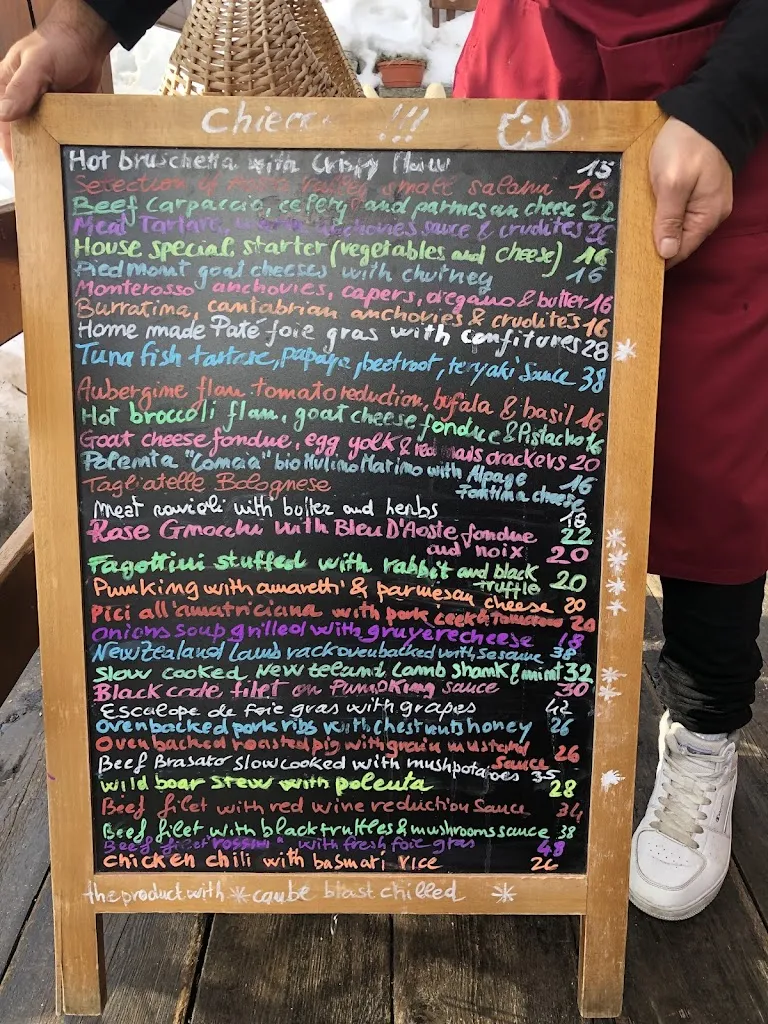 !!!
Hot bruschetta with crispy 15
Selection of Aosta Valley small salami 16
Beef Carpaccio, celery and parmesan cheese 22
Meat Tartare, anchovies sauce & crudites 26
House special starter (vegetables and cheese) 16
Piedmont goat cheeses with chutney 16
Monterosso anchovies, capers, oregano & butter 16
Burratina, cantabrian anchovies & crudites 16
Home made Paté foie gras with confitures 28
Tuna fish tartare, papaya, beetroot, teryaki sauce 38
Aubergine flan tomato reduction, bufala & basil 16
Hot broccoli flan, goat cheese fondue & Pistacho 16
Goat cheese fondue, egg yolk & crackers 20
Polenta bio Mulino Marino with Alpage 16
Fontina cheese
Tagliatelle Bolognese
Meat ravioli with butter and herbs 18
Rose Gnocchi with Bleu D'Aoste fondue 22
and noix 20
Fagottini stuffed with rabbit and black 20
truffle
Pumking with amaretti & parmesan cheese 20
Pici all'amatriciana with pork & tomatoes 20
Onions soup grilled with gruyere cheese 18
New Zealand Lamb rack oven backed with sesame 38
Slow cooked New Zeeland Lamb Shank & mint 32
Black code filet on Pumpking sauce 30
Escalope de foie gras with grapes 42
Oven backed pork ribs with Chestnuts honey 26
Oven backed roasted pig with grain mustard 26
Sauce
Beef Brasato slow cooked with mushpotatoes 35
Wild boar stew with polenta 28
Beef filet with red wine reduction sauce 34
Beef filet with black fruttles & mushrooms sauce 38
Beef filet "rossini" with fresh foie gras 48
Chicken chili with basmati rice 26
the product with * can be blast chilled *